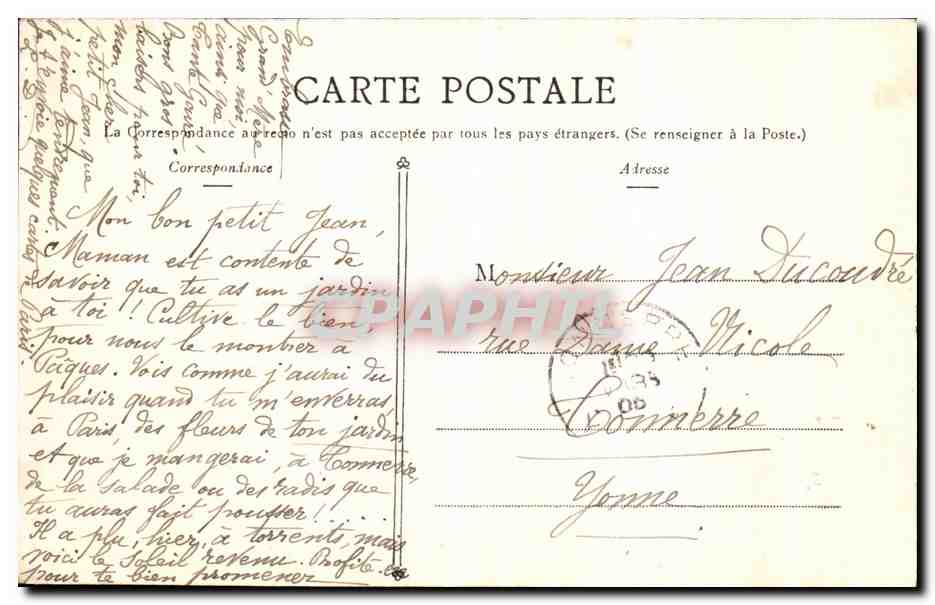 CARTE POSTALE
La Correspondance au recto n'est pas acceptée par tous les pays étrangers. (Se renseigner à la Poste.)
Correspondance
Adresse
Mon bon petit Jean,
Maman est contente de
savoir que tu as un jardin
à toi ! Cultive le bien,
pour nous le montrer à
Pâques. Vois comme j'aurai du
plaisir quand tu m'enverras,
à Paris, des fleurs de ton jardin
et que je mangerai, à Tonnerre,
de la salade ou des radis que
tu auras fait pousser !
Il a plu, hier, à torrents, mais
voici le soleil revenu. Profite-en
pour te bien promener
Embrasse
Grand'Mère
pour moi,
ainsi que
Tante Laure,
bons gros
baisers pour toi,
mon cher
petit Jean, que
j'aime tendrement.
Je t'envoie quelques cartes de Paris
Monsieur Jean Ducoudré
rue Dame Nicole
Tonnerre
Yonne
06
CPAPHIL